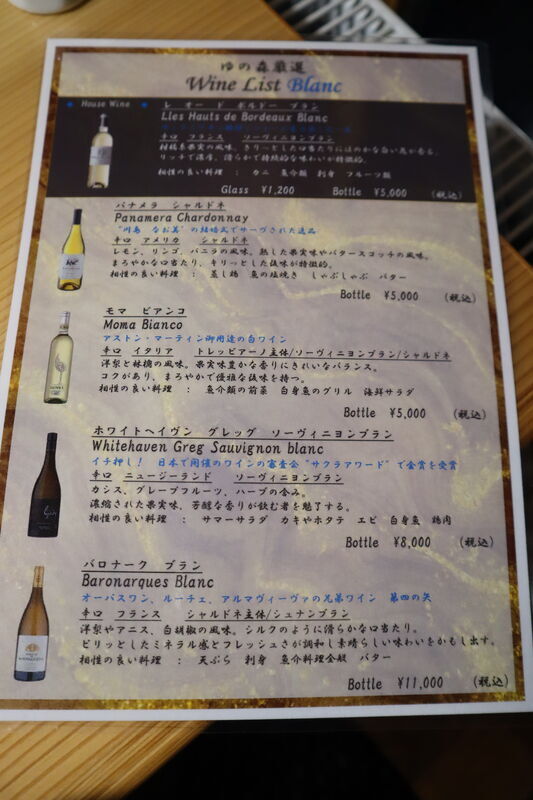 ゆの森厳選
Wine List Blanc
House Wine
レ オー ド ボルドー ブラン
Lles Hauts de Bordeaux Blanc
辛口 フランス ソーヴィニヨンブラン
柑橘系果実の風味。きりっとした口当たりにほのかな白い花が香る。
リッチで濃厚、滑らかで持続的な味わいが特徴的。
相性の良い料理 : カニ 魚介類 刺身 フルーツ類
Glass ¥1,200 Bottle ¥5,000 (税込)
パナメラ シャルドネ
Panamera Chardonnay
"川島 なお美"の結婚式でサーヴされた逸品
辛口 アメリカ シャルドネ
レモン、リンゴ、バニラの風味。熟した果実味やバタースコッチの風味。
まろやかな口当たり、キリッとした後味が特徴的。
相性の良い料理 : 蒸し鶏 魚の塩焼き しゃぶしゃぶ バター
Bottle ¥5,000 (税込)
モマ ビアンコ
Moma Bianco
アストン・マーティン御用達の白ワイン
辛口 イタリア トレッビアーノ主体/ソーヴィニヨンブラン/シャルドネ
洋梨と林檎の風味。果実味豊かな香りにきれいなバランス。
コクがあり、まろやかで優雅な後味を持つ。
相性の良い料理 : 魚介類の前菜 白身魚のグリル 海鮮サラダ
Bottle ¥5,000 (税込)
ホワイトヘイヴン グレッグ ソーヴィニヨンブラン
Whitehaven Greg Sauvignon blanc
イチ押し! 日本で開催のワインの審査会"サクラアワード"で金賞を受賞
辛口 ニュージーランド ソーヴィニヨンブラン
カシス、グレープフルーツ、ハーブの含み。
濃縮された果実味、芳醇な香りが飲む者を魅了する。
相性の良い料理 : サマーサラダ カキやホタテ エビ 白身魚 鶏肉
Bottle ¥8,000 (税込)
バロナーク ブラン
Baronarques Blanc
オーパスワン、ルーチェ、アルマヴィーヴァの兄弟ワイン 第四の矢
辛口 フランス シャルドネ主体/シュナンブラン
洋梨やアニス、白胡椒の風味。シルクのように滑らかな口当たり。
ピリッとしたミネラル感とフレッシュさが調和し素晴らしい味わいをかもし出す。
相性の良い料理 : 天ぷら 刺身 魚介料理全般 バター
Bottle ¥11,000 (税込)